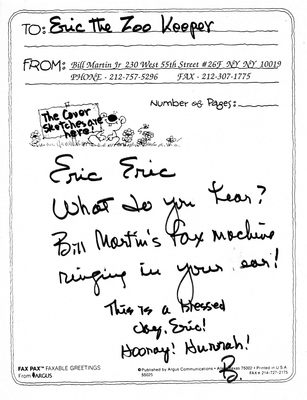 TO: Eric the Zoo Keeper
FROM: Bill Martin Jr 230 West 55th Street #26F NY NY 10019
PHONE - 212-757-5296 FAX - 212-307-1775
Number of Pages:
The Cover
Sketches are
here!
Eric Eric
What do you hear?
Bill Martin's Fax machine
ringing in your ear!
This is a blessed
day, Eric!
Hooray! Hurrah!
B.
FAX PAX™ FAXABLE GREETINGS
From ARGUS
©Published by Argus Communications • Allen, Texas 75002 • Printed in U.S.A.
55025
FAX# 214-727-2175